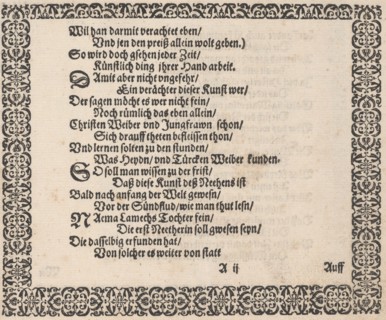 Wil han darmit verachtet eben/
Vnd jen den preiß allein wolt geben.)
So wird doch gsehen jeder Zeit/
Künstlich ding ihrer Hand arbeit.
Damit aber nicht vngefehr/
Ein verächter dieser Kunst wer/
Der sagen möcht es wer nicht fein/
Noch rümlich das eben allein/
Christen Weiber vnd Jungfrawn schon/
Sich drauff theten befleissen thon/
Vnd lernen solten zu den stunden/
Was Heydn/ vnd Türcken Weiber kunden.
So soll man wissen zu der frist/
Daß diese Kunst deß Neehens ist
Bald nach anfang der Welt gewesn/
Vor der Sündflud/ wie man thut lesn/
Naema Lamechs Tochter fein/
Die erst Neetherin soll gwesen seyn/
Die dasselbig erfunden hat/
Von solcher es weiter von statt
A ij
Auff